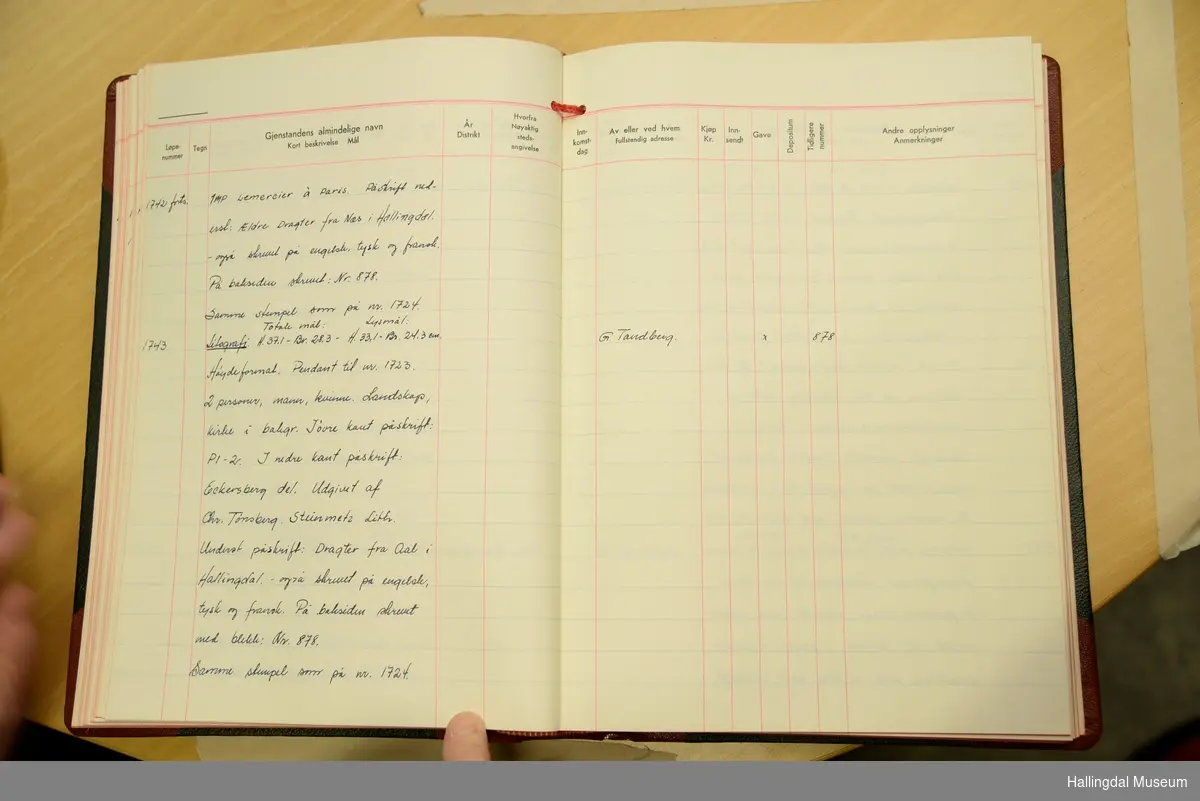 Løpe-
nummer
Tegn
Gjenstandens almindelige navn
Kort beskrivelse Mål
År
Distrikt
Hvorfra
Nøyaktig
steds-
angivelse
Inn-
komst-
dag
Av eller ved hvem
Fullstendig adresse
Kjøp
Kr.
Inn-
sendt
Gave
Depositum
Tidligere
nummer
Andre opplysninger
Anmerkninger
1742 forts. Imp Lemercier à Paris. Påskrift ned-
erst: Ældre Dragter fra Næs i Hallingdal.
- også skrevet på engelsk, tysk og fransk.
På baksiden skrevet: Nr. 878.
Samme stempel som på nr. 1724.
Totale mål: Lysmål:
1743 Litografi: H. 37.1 - Br. 28.3 - H. 33,1 - Br. 24.3 cm. G Tandberg. x 878
Høydeformat. Pendant til nr. 1723.
2 personer, mann, kvinne. Landskap,
kirke i bakgr. I øvre kant påskrift:
Pl - 2. I nedre kant påskrift:
Eckersberg del. Udgivet af
Chr. Tönsberg. Steinmetz Lith.
Underst påskrift: Dragter fra Aal i
Hallingdal. - også skrevet på engelsk,
tysk og fransk. På baksiden skrevet
med blekk: Nr. 878.
Samme stempel som på nr. 1724.
Hallingdal Museum